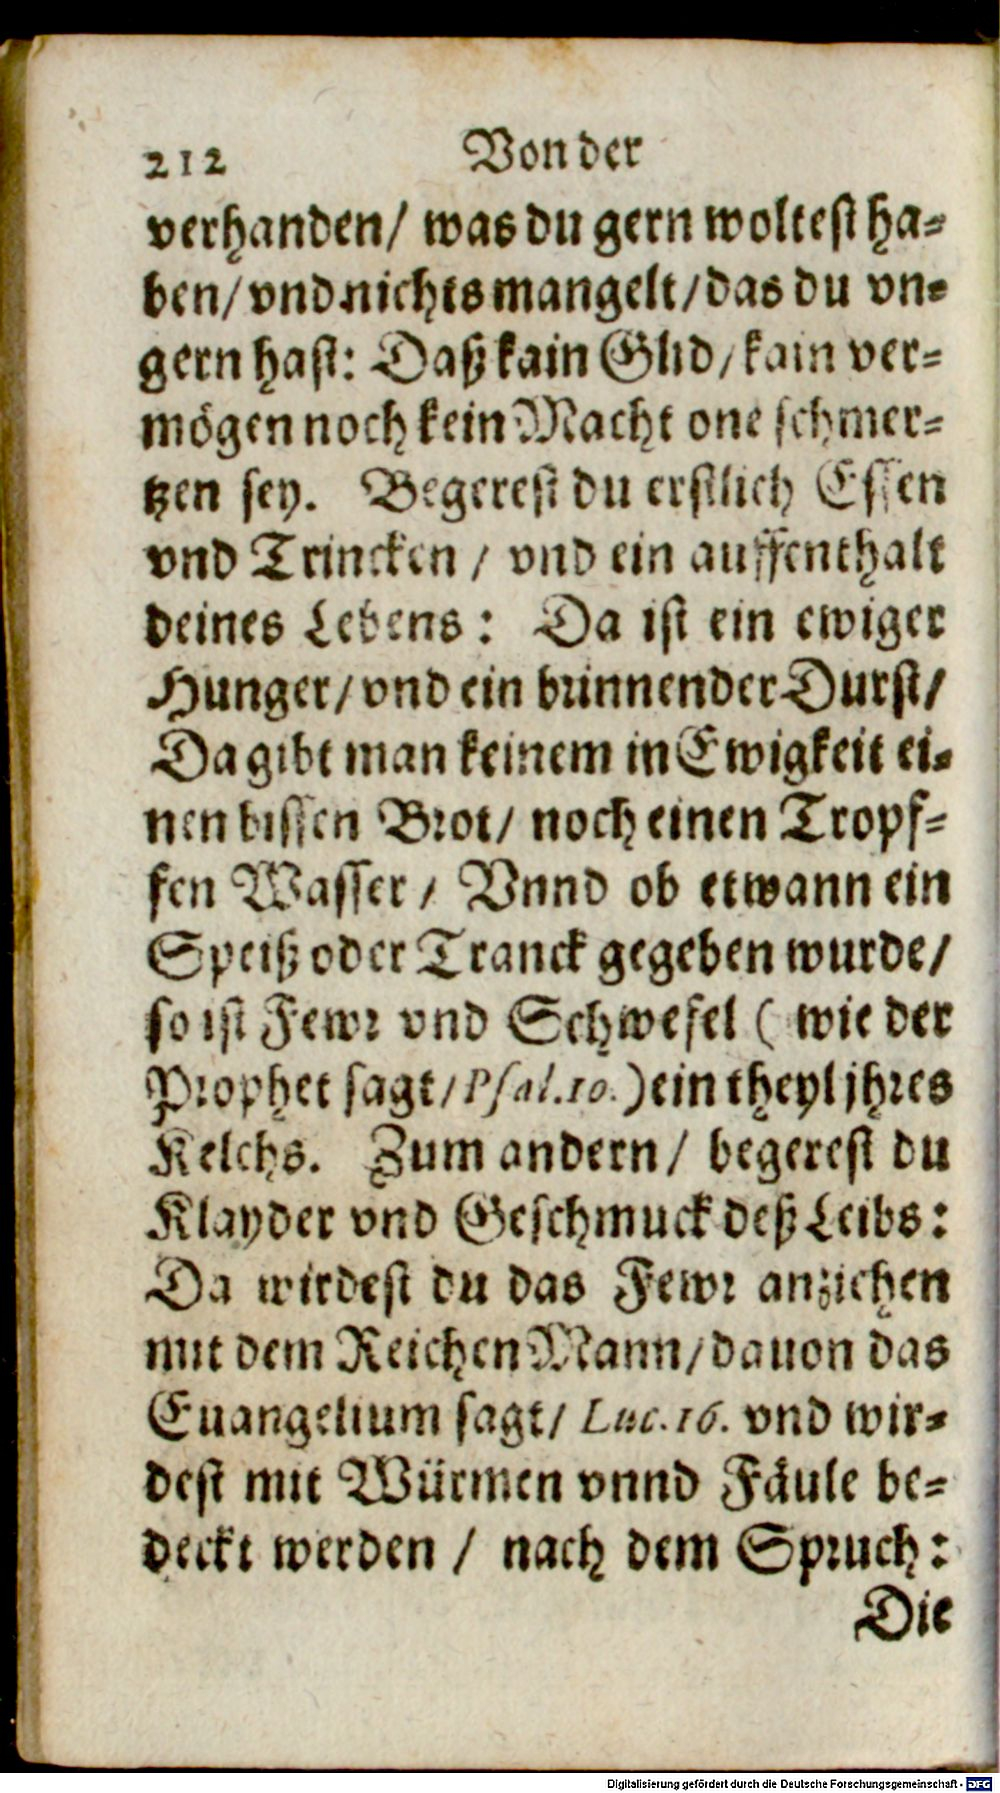 212 Von der
verhanden/ was du gern woltest ha-
ben/ vnd nichts mangelt/ das du vn-
gern hast: Daß kain Glid/ kain ver-
mögen noch kein Macht one schmer-
tzen sey. Begerest du erstlich Essen
vnd Trincken / vnd ein auffenthalt
deines Lebens: Da ist ein ewiger
Hunger/ vnd ein brinnender Durst/
Da gibt man keinem in Ewigkeit ei-
nen bissen Brot/ noch einen Tropf-
fen Wasser/ Vnnd ob etwann ein
Speiß oder Tranck gegeben wurde/
so ist Fewr vnd Schwefel ( wie der
Prophet sagt/ Psal.10.) ein theyl jhres
Kelchs. Zum andern/ begerest du
Klayder vnd Geschmuck deß Leibs:
Da wirdest du das Fewr anziehen
mit dem Reichen Mann/ dauon das
Euangelium sagt/ Luc.16. vnd wir-
dest mit Würmen vnnd Fäule be-
deckt werden / nach dem Spruch:
Die
Digitalisierung gefördert durch die Deutsche Forschungsgemeinschaft - DFG